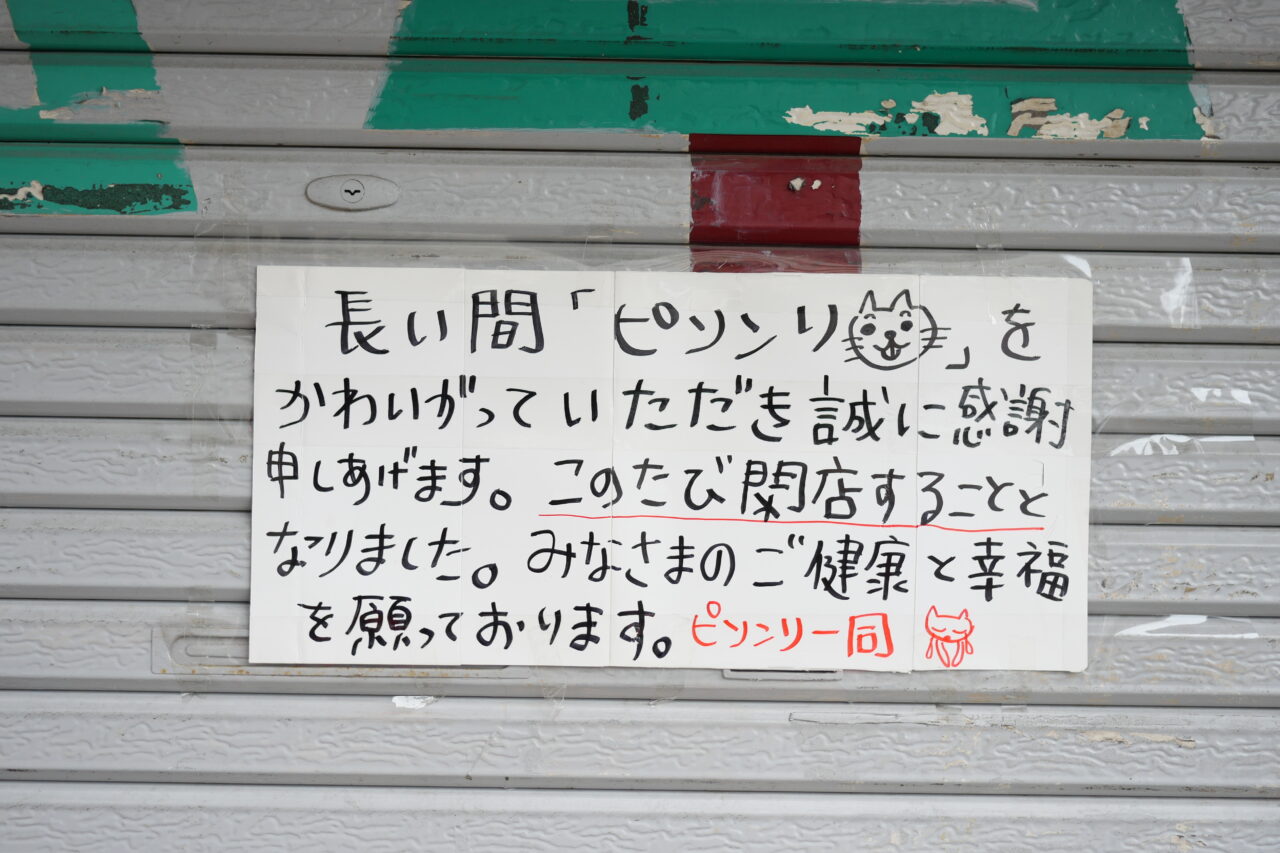 長い間「ピソンリ」を
かわいがっていただき誠に感謝
申しあげます。このたび閉店することと
なりました。みなさまのご健康と幸福
を願っております。ピソンリ一同